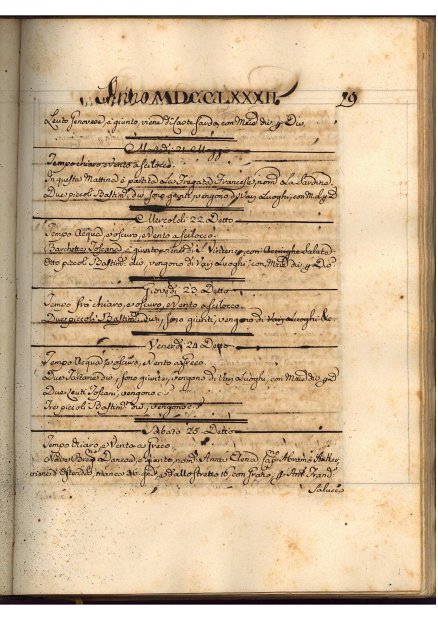 Anno MDCCLXXXII 29
Leuto Genovese, è giunto, viene di Capte Sarda, con Merd div p Div
Martedi 21 Maggio
Tempo chiaro, e Vento a scilocco.
In questa Mattina è partita La Fregata Francese, nomª La Sardina
Due piccoli Bastimti divi, sono giunti, vengono di Varj Luoghi, con M d p D
Mercoldi 22 Detto
Tempo Acqua, e oscuro, e Vento a scilocco.
Barchetta Toscana, è giunta, di S. Vincenzo, con Acciughe Salate
Otto piccoli Bastimti divi, vengono di Varj Luoghi, con Merd div p Div
Giovedi 23 Detto
Tempo frà chiaro, e oscuro, e Vento a scilocco.
Due piccoli Bastimti divi, sono giunti, vengono di Varj Luoghi &c.
Venerdi 24 Detto
Tempo Acqua, e oscuro, e Vento a freco.
Due Toscane div, sono giunte, vengono di Varj Luoghi, con Merd div p D
Due Leuti Toscani, vengono
Tre piccoli Bastimti divi, vengono
Sabato 25 Detto
Tempo chiaro, e Vento a freco.
Nave Danese, è giunta, nomª Anna Elena, Capª
viene d'Ostenda, manca 36 gni, e dallo stretto 16, con Grano, p Ant. Frandª
Salucci